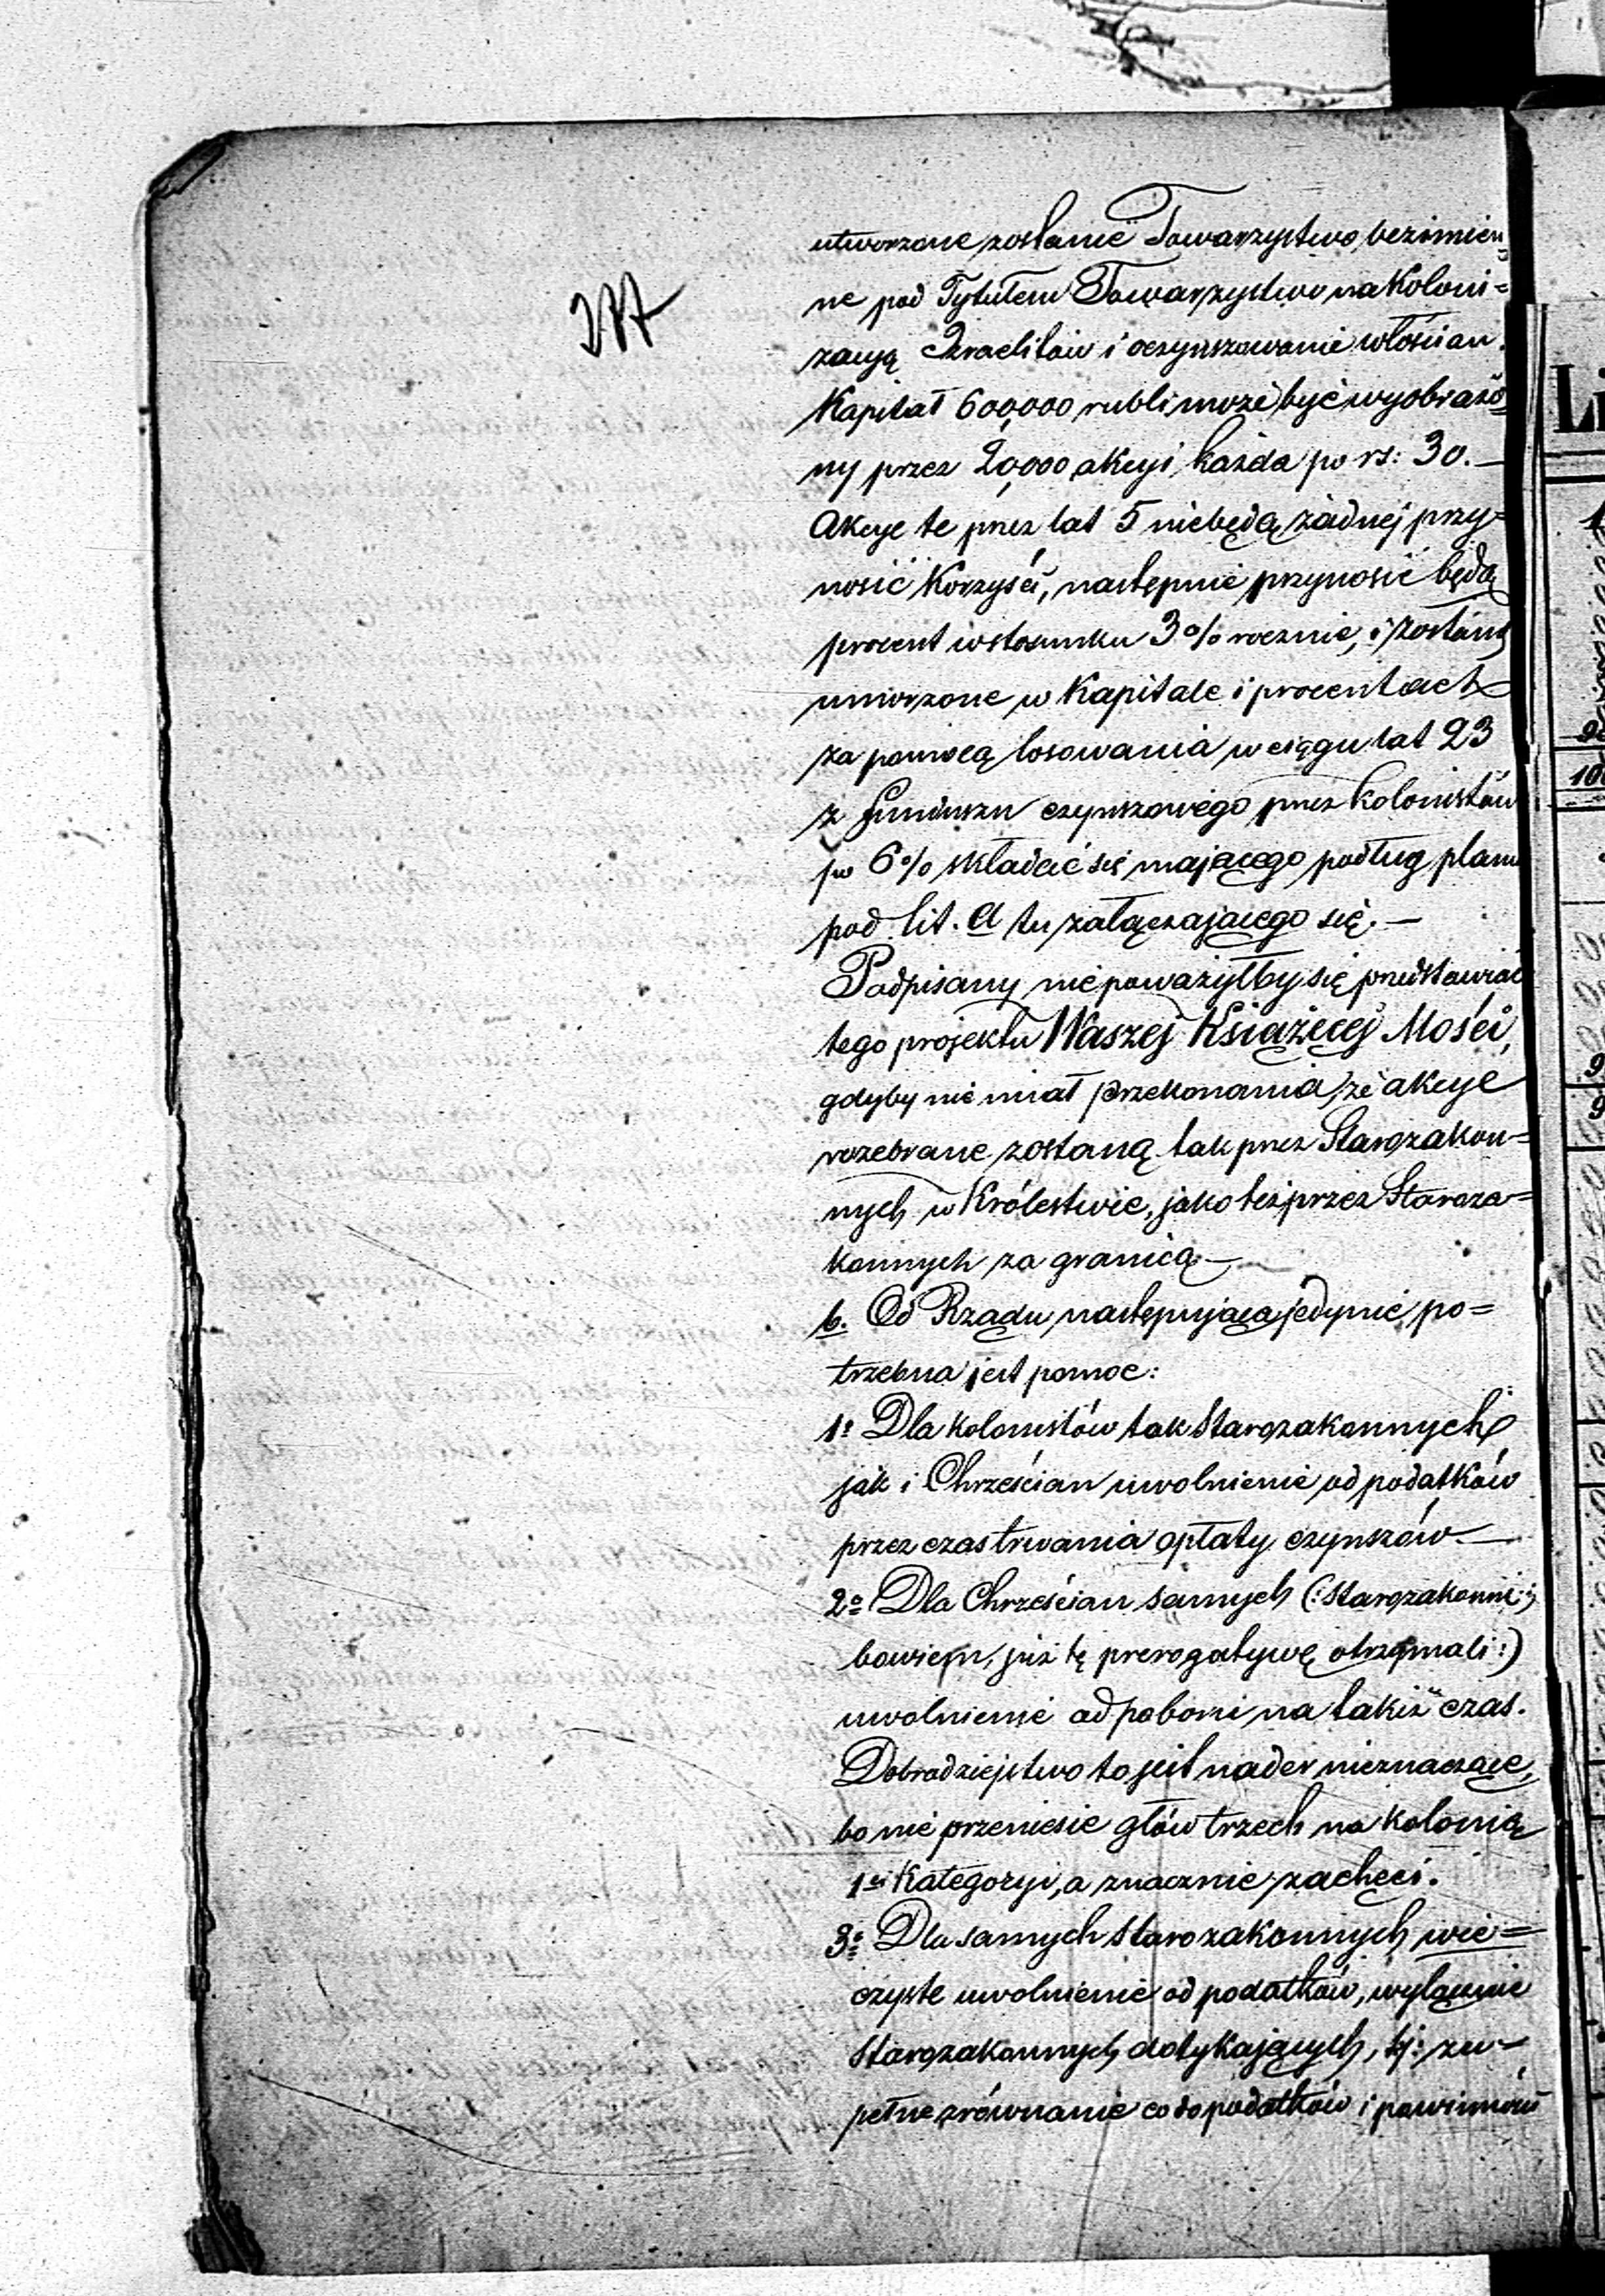 277
utworzone zostanie Towarzystwo bezimien=
ne pod Tytułem Towarzystwo na Koloni=
zacyą Izraelitów i oczynszowanie włościan.
Kapitał 600,000 rubli może być wyobrażo=
ny przez 20,000 akcyi każda po rs: 30.—
Akcye te przez lat 5 niebędą żadnej przy=
nosić Korzyści, następnie przynosić będą
procent w stosunku 3% rocznie, i zostaną
umorzone w Kapitale i procentach
za pomocą losowania w ciągu lat 23
z funduszu czynszowego przez kolonistów
po 6% składać się mającego podług planu
pod lit. A tu załączającego się.—
Podpisany nie poważyłby się przedstawiać
tego projektu Waszej Książęcej Mości,
gdyby nie miał przekonania, że akcye
rozebrane zostaną tak przez Starozakon=
nych w Królestwie, jako też przez Staroza=
konnych za granicą—
b. Od Rządu następująca jedynie po=
trzebna jest pomoc:
1o Dla kolonistów tak Starozakonnych
jak i Chrześcian uwolnienie od podatków
przez czas trwania opłaty czynszów—
2o Dla Chrześcian samych (:Starozakonni
bowiem, już tę prerogatywę otrzymali:)
uwolnienie od pobori na takiż czas.
Dobrodziejstwo to jest nader nieznaczące,
bo nie przeniesie głów trzech na kolonią
1ej Kategoryi, a znacznie zachęci.
3o Dla samych Starozakonnych wie=
czyste uwolnienie od podatków, wyłącznie
Starozakonnych dotykających, tj: zu=
pełne zrównanie co do podatków i powinności